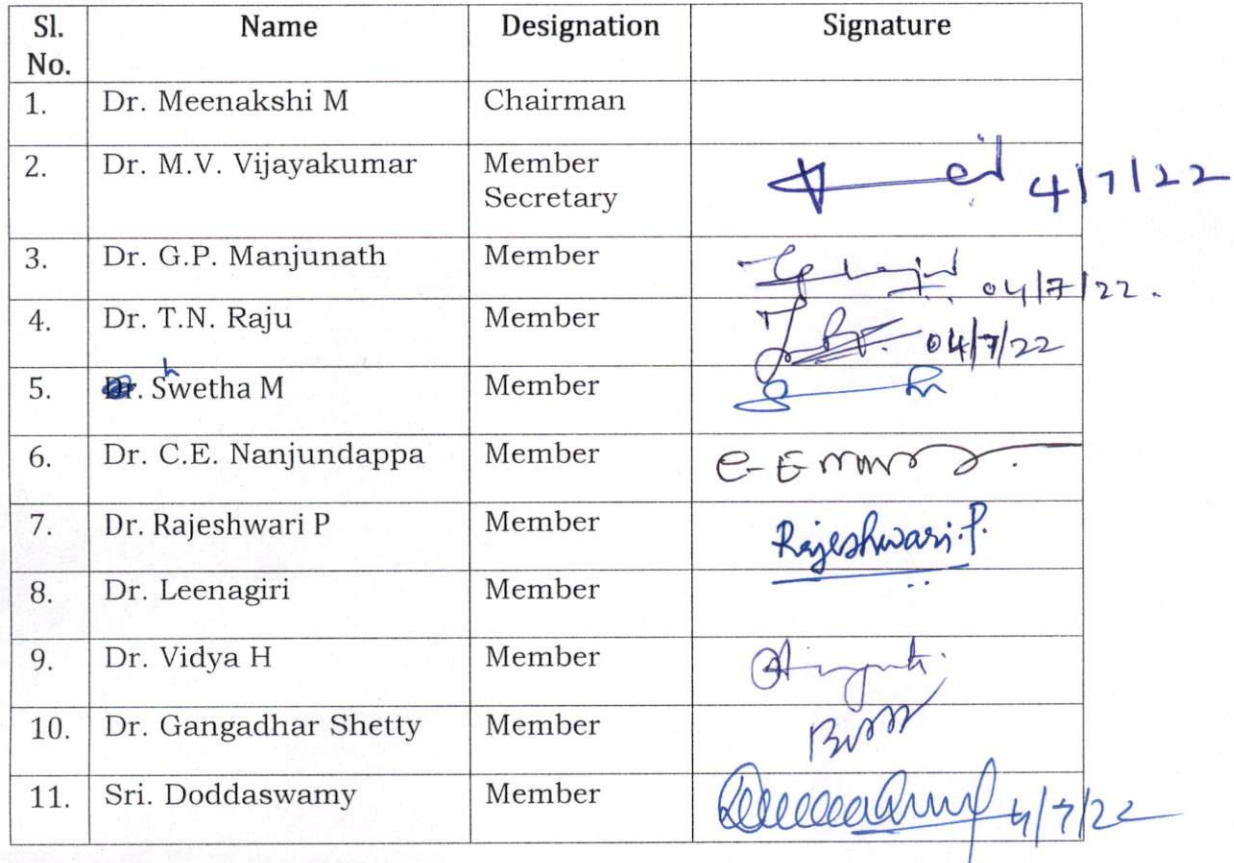 Sl. No. Name Designation Signature
1. Dr. Meenakshi M Chairman
2. Dr. M.V. Vijayakumar Member Secretary 4/7/22
3. Dr. G.P. Manjunath Member 04/7/22.
4. Dr. T.N. Raju Member 04/7/22
5. Shwetha M Member
6. Dr. C.E. Nanjundappa Member
7. Dr. Rajeshwari P Member Rajeshwari.P.
8. Dr. Leenagiri Member
9. Dr. Vidya H Member
10. Dr. Gangadhar Shetty Member
11. Sri. Doddaswamy Member 4/7/22